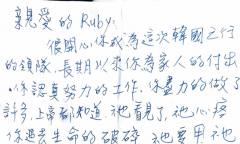 親愛的 Ruby:
很開心你成為這次韓國之行
的領隊,長期以來你為家人的付出
,你認真努力的工作,你盡力的做了
許多,上帝都知道,祂看見了,祂心疼
你過去生命的破碎,祂要用祂